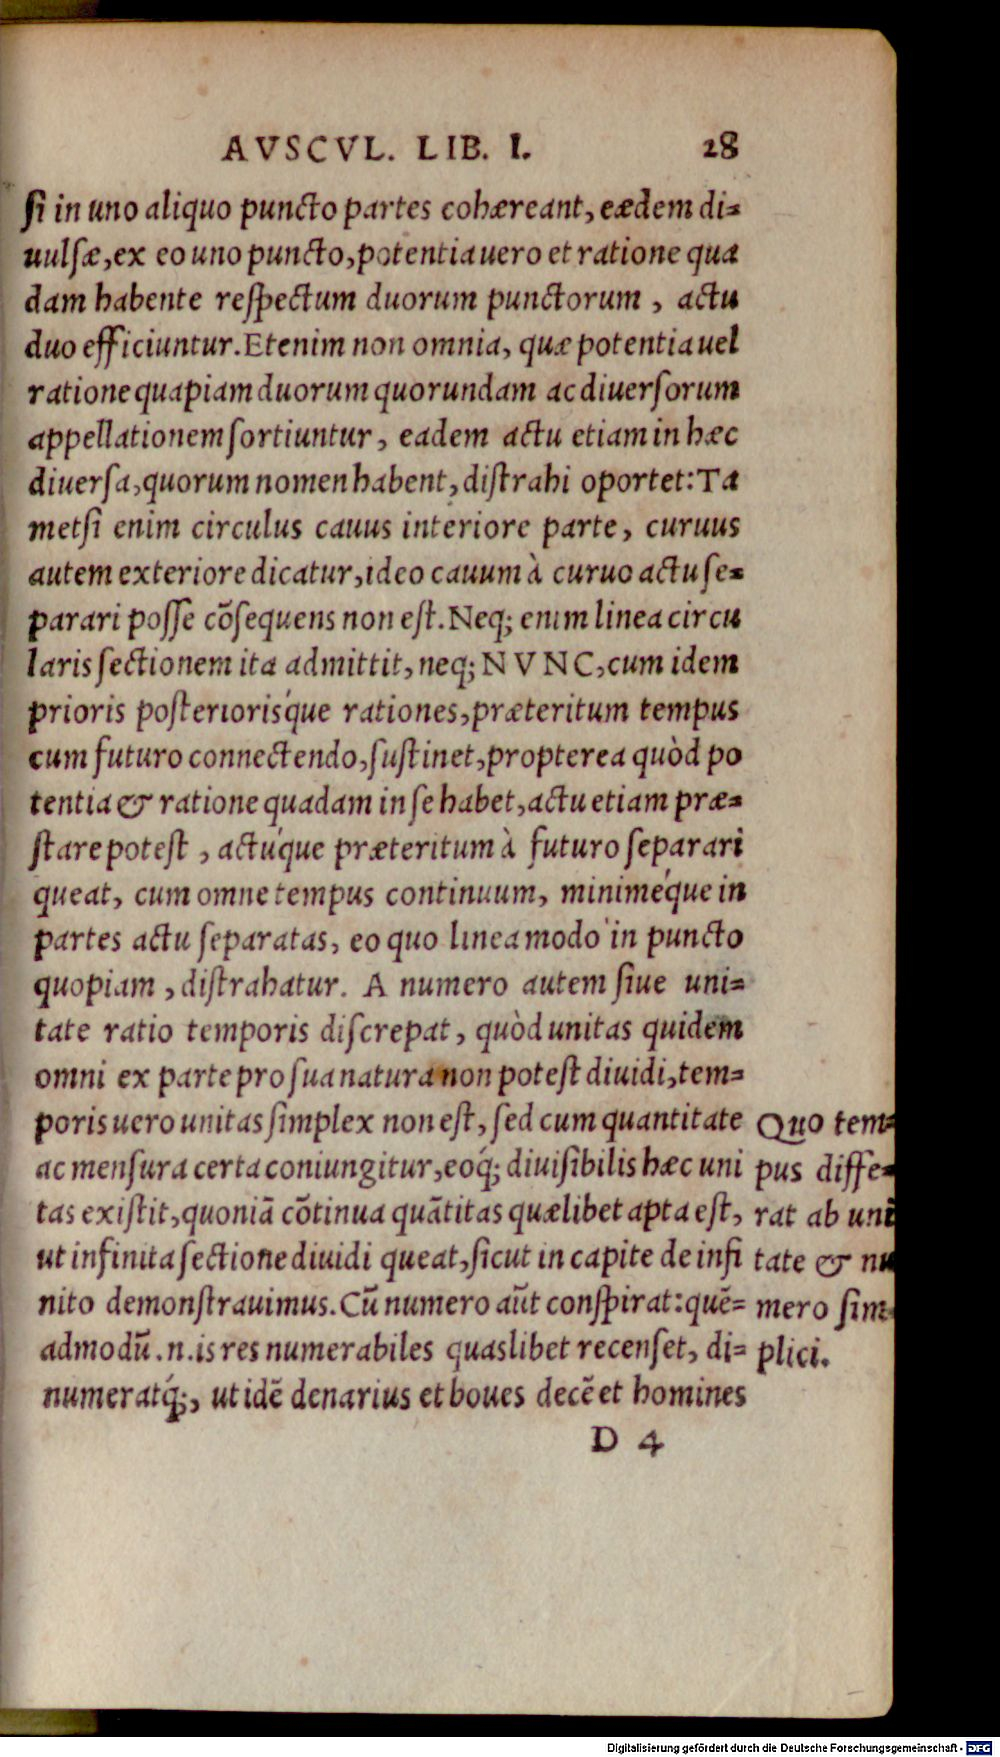 AVSCVL. LIB. I. 28
ſi in uno aliquo puncto partes cohæreant, eædem di=
uulſæ, ex eo uno puncto, potentia uero et ratione qua
dam habente reſpectum duorum punctorum, actu
duo efficiuntur. Etenim non omnia, quæ potentia uel
ratione quapiam duorum quorundam ac diuerſorum
appellationem ſortiuntur, eadem actu etiam in hæc
diuerſa, quorum nomen habent, diſtrahi oportet: Ta
metſi enim circulus cauus interiore parte, curuus
autem exteriore dicatur, ideo cauum à curuo actu ſe=
parari poſſe cõſequens non eſt. Neq; enim linea circu
laris ſectionem ita admittit, neq; NVNC, cum idem
prioris poſteriorisq́ue rationes, præteritum tempus
cum futuro connectendo, ſuſtinet, propterea quòd po
tentia & ratione quadam in ſe habet, actu etiam præ=
ſtare poteſt, actuq́ue præteritum à futuro ſeparari
queat, cum omne tempus continuum, minimeq́ue in
partes actu ſeparatas, eo quo linea modo in puncto
quopiam, diſtrahatur. A numero autem ſiue uni=
tate ratio temporis diſcrepat, quòd unitas quidem
omni ex parte pro ſua natura non poteſt diuidi, tem=
poris uero unitas ſimplex non eſt, ſed cum quantitate
ac menſura certa coniungitur, eoq́; diuiſibilis hæc uni
tas exiſtit, quoniã cõtinua quãtitas quælibet apta eſt,
ut infinita ſectione diuidi queat, ſicut in capite de infi
nito demonſtrauimus. Cũ numero aũt conſpirat: quẽ=
admodũ .n. is res numerabiles quaslibet recenſet, di=
numeratq́;, ut idẽ denarius et boues decẽ et homines
Quo tem=
pus diffe=
rat ab uni
tate & nu
mero ſim=
plici.
D 4
Digitalisierung gefördert durch die Deutsche Forschungsgemeinschaft - DFG